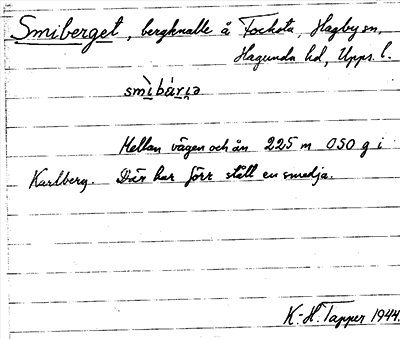 Smiberget, bergknalle å Focksta, Hagby sn,
Hagunda hd, Upps. l.
smìbárɪ̯ə
Mellan vägen och ån 225 m OSO g i
Karlberg. Där har förr stått en smedja.
K.-H. Tapper 1944.